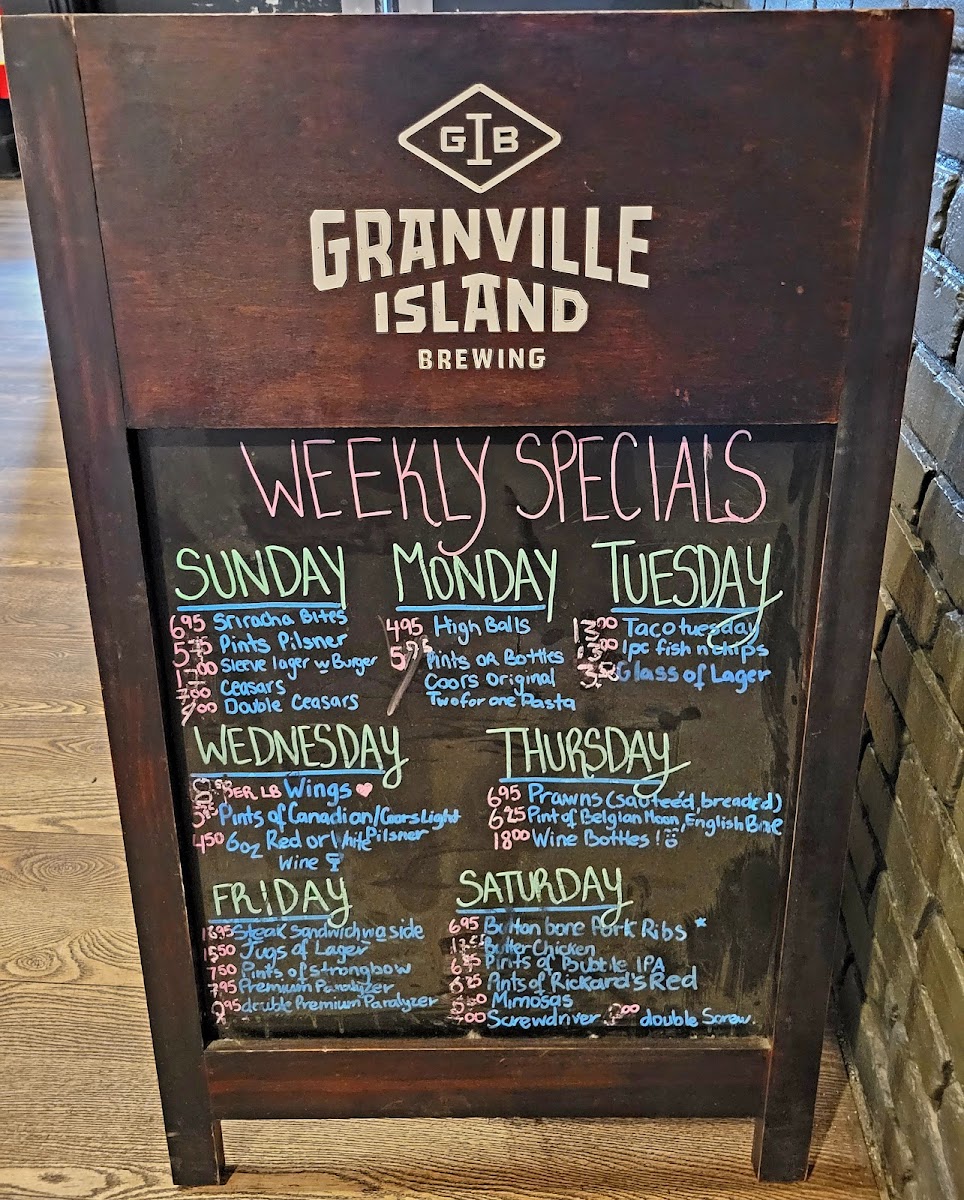 GIB
GRANVILLE
ISLAND
BREWING
WEEKLY SPECIALS
SUNDAY
695 Sriracha Bites
Pints Pilsner
Sleeve lager w Burger
700 Ceasars
900 Double Ceasars
MONDAY
495 High Balls
Pints OR Bottles
Coors Original
Two for one Pasta
TUESDAY
1300 Taco tuesday
1pc fish n chips
Glass of Lager
WEDNESDAY
PER LB Wings
Pints of Canadian/Coors Light
Pilsner
450 6oz Red or White
Wine
THURSDAY
695 Prawns (sauteéd, breaded)
625 Pint of Belgian Moon, English Bae
1800 Wine Bottles!
FRIDAY
1895 Steak Sandwich w a side
1550 Jugs of Lager
750 Pints of strongbow
795 Premium Paralyzer
995 double Premium Paralyzer
SATURDAY
695 Button bone Pork Ribs *
Butter Chicken
Pints of Bubtile IPA
625 Pints of Rickard's Red
Mimosas
Screwdriver double Screw.